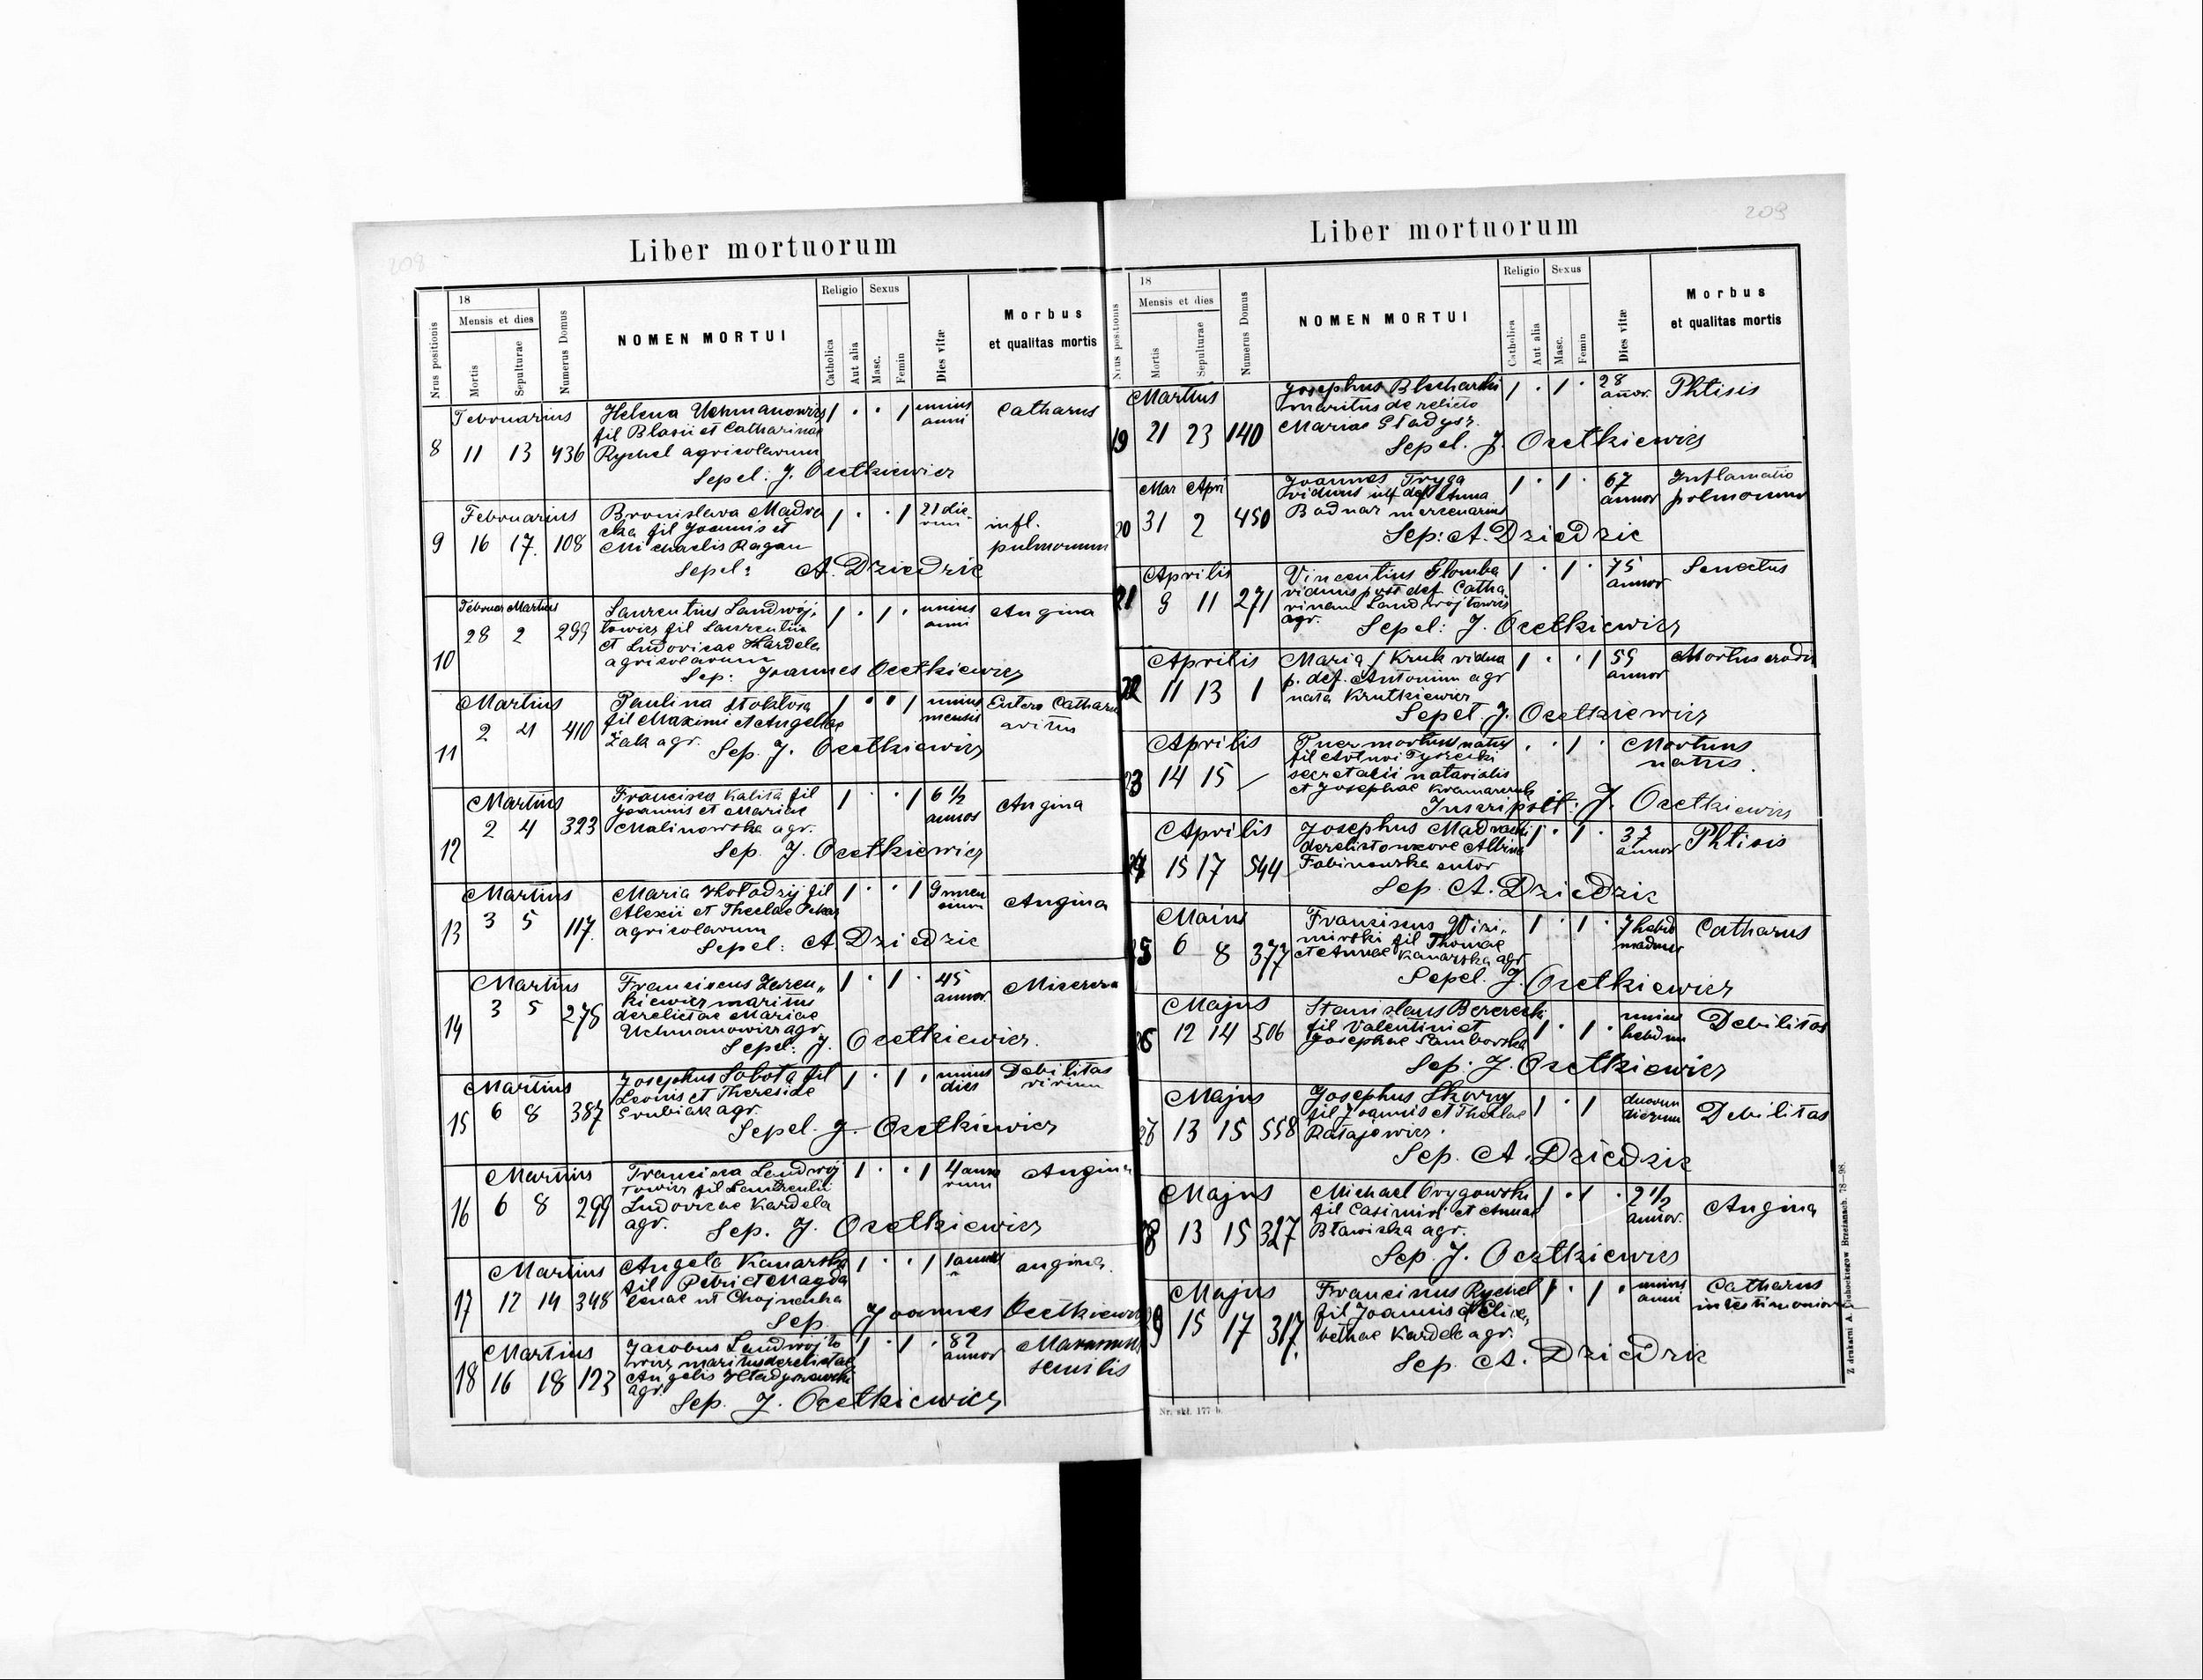 208
Liber mortuorum
Nrus positionis
18
Mensis et dies
Mortis
Sepulturae
Numerus Domus
NOMEN MORTUI
Religio
Catholica
Aut alia
Sexus
Masc.
Femin
Dies vitæ
Morbus
et qualitas mortis
Februarius Helena Uchmanowicz 1 . . 1 unius Catharus
fil Blasii et Catharinae anni
8 11 13 436 Rychel agricolarum
Sepel: J. Ocetkiewicz
Februarius Bronislava Madra 1 . . 1 21 die- infl.
cka fil Joannis et rum pulmonum
9 16 17. 108 Michaelis Ragan
Sepel: A. Dziedzic
Februar Martius Laurentius Landwój, 1 . 1 . unius Angina
28 2 299 towicz fil Laurentii anni
et Ludovicae Kardela
10 agricolarum
Sep: Joannes Ocetkiewicz
Martius Paulina Stoklosa 1 . . 1 unius Entero Catharus
2 4 410 fil Maximi et Angelae mensis
11 Żak agr. Sep. J. Ocetkiewicz
Martius Francisca Kalita fil 1 . . 1 6 1/2 Angina
2 4 323 Joannis et Mariae annos
12 Malinowska agr.
Sep. J. Ocetkiewicz
Martius Maria Kołodzij fil 1 . . 1 9 men Angina
3 5 117. Alexii et Theclae sium
13 agricolarum
Sepel: A. Dziedzic
Martius Franciscus 1 . 1 . 45 Miserere
3 5 276 kiewicz maritus annor.
derelictae Mariae
14 Uchmanowicz agr.
Sepel: J. Ocetkiewicz.
Martius Josephus Sobota fil 1 . 1 . unius Debilitas
6 8 387 Leonis et Theresiae dies virium
15 agr.
Sepel. J. Ocetkiewicz
Martius Francisca Landwój 1 . . 1 4 anno Angina
6 8 299 towicz fil Laurentii rum
16 Ludovicae Kardela
agr. Sep. J. Ocetkiewicz
Martius Angela Kanarska 1 . . 1 1 angina.
12 14 348 fil Petri et Magda
17 lenae
Sep. Joannes Ocetkiewicz
Martius Jacobus Landwójto 1 . 1 . 82 Marasmus
18 16 18 123 wicz maritus derelictae annor senilis
Angelis
agr. Sep. J. Ocetkiewicz
209
Liber mortuorum
Nrus positionis
18
Mensis et dies
Mortis
Sepulturae
Numerus Domus
NOMEN MORTUI
Religio
Catholica
Aut alia
Sexus
Masc.
Femin
Dies vitæ
Morbus
et qualitas mortis
Martius Josephus Blecharski 1 . 1 . 28 Phtisis
maritus de relicto annor.
19 21 23 140 Mariae Gładysz.
Sepel. J. Ocetkiewicz
Mar Apri Joannes Fryga 1 . 1 . 67 Inflamatio
20 31 2 450 viduus def Anna annor polmonum
Bodnar mercenarius
Sep: A. Dziedzic
Aprilis Vincentius Glomba 1 . 1 . 75 Senectus
21 9 11 271 viduus post def. Catha annor
rinam Landwojtowicz
agr. Sepel: J. Ocetkiewicz
Aprilis Maria Kruk vidua 1 . . 1 59
22 11 13 1 p. def. Antonium agr annor
nata Krutkiewicz
Sepel. J. Ocetkiewicz
Aprilis Puer mortuus natus . . 1 . Mortuus
23 14 15 — fil natus.
secretarii notarialis
et Josephae
J. Ocetkiewicz
Aprilis Josephus Madracki 1 . 1 . 37 Phtisis
24 15 17 544 derelicto uxore Albina annor
sutor
Sep. A. Dziedzic
Maius Franciscus Wisi, 1 . 1 . 7 hebdo Catharus
25 6 8 377 mirski fil Thomae madum
et Annae Kanarska agr.
Sepel. J. Ocetkiewicz
Majus Stanislaus Berezecki
26 12 14 506 fil Valentini et 1 . 1 . unius Debilitas
Josephae Samborska hebdm
Sep: J. Ocetkiewicz
Majus Josephus Skorny 1 . 1 duorum Debilitas
27 13 15 558 fil Joannis et Theclae dierum
Ratajewicz.
Sep. A. Dziedzic
Majus Michael Grygowski 1 . 1 . 2 1/2 Angina
28 13 15 327 fil Casimiri et Annae annor.
Bławicka agr.
Sep. J. Ocetkiewicz
Majus Franciscus Rychel 1 . 1 . unius Catharus
29 15 17 317. fil Joannis et Elisa, anni
bethae Kardela agr.
Sep. A. Dziedzic
Nr. skł. 177 b.